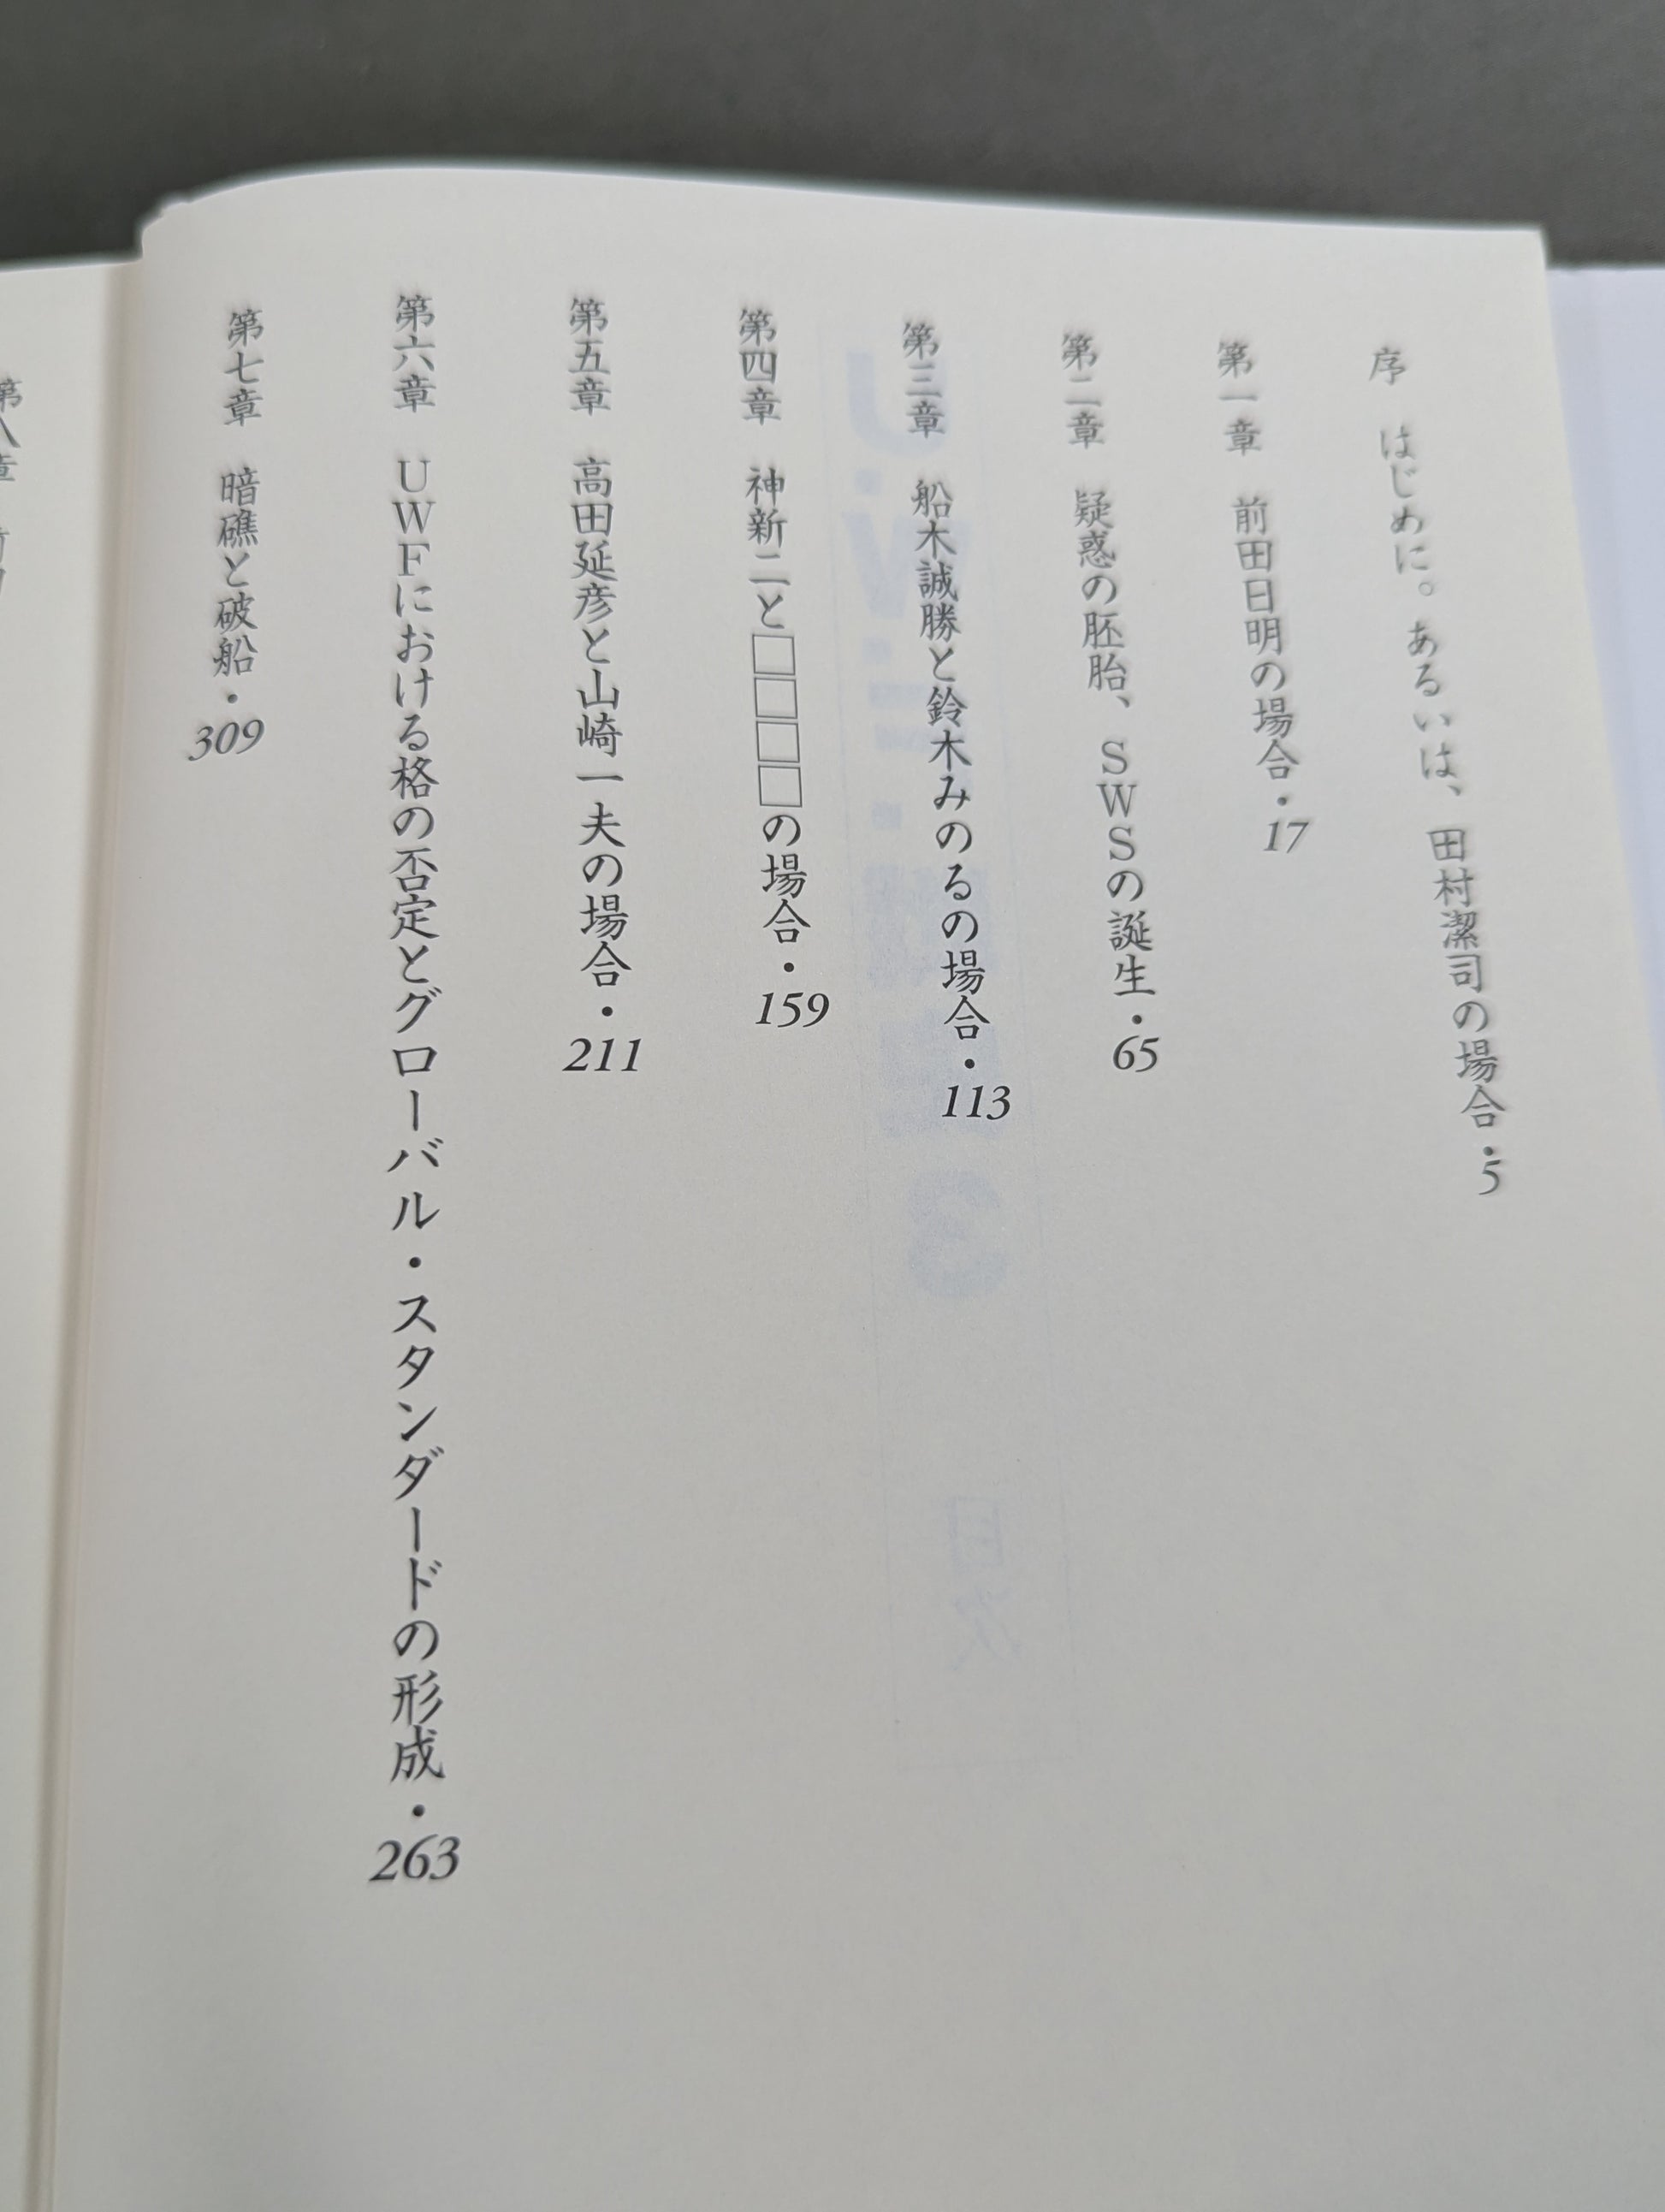 序　はじめに。あるいは、田村潔司の場合・5
第一章　前田日明の場合・17
第二章　疑惑の胚胎、ＳＷＳの誕生・65
第三章　船木誠勝と鈴木みのるの場合・113
第四章　神新二と□□□□の場合・159
第五章　高田延彦と山崎一夫の場合・211
第六章　ＵＷＦにおける格の否定とグローバル・スタンダードの形成・263
第七章　暗礁と破船・309
第八章